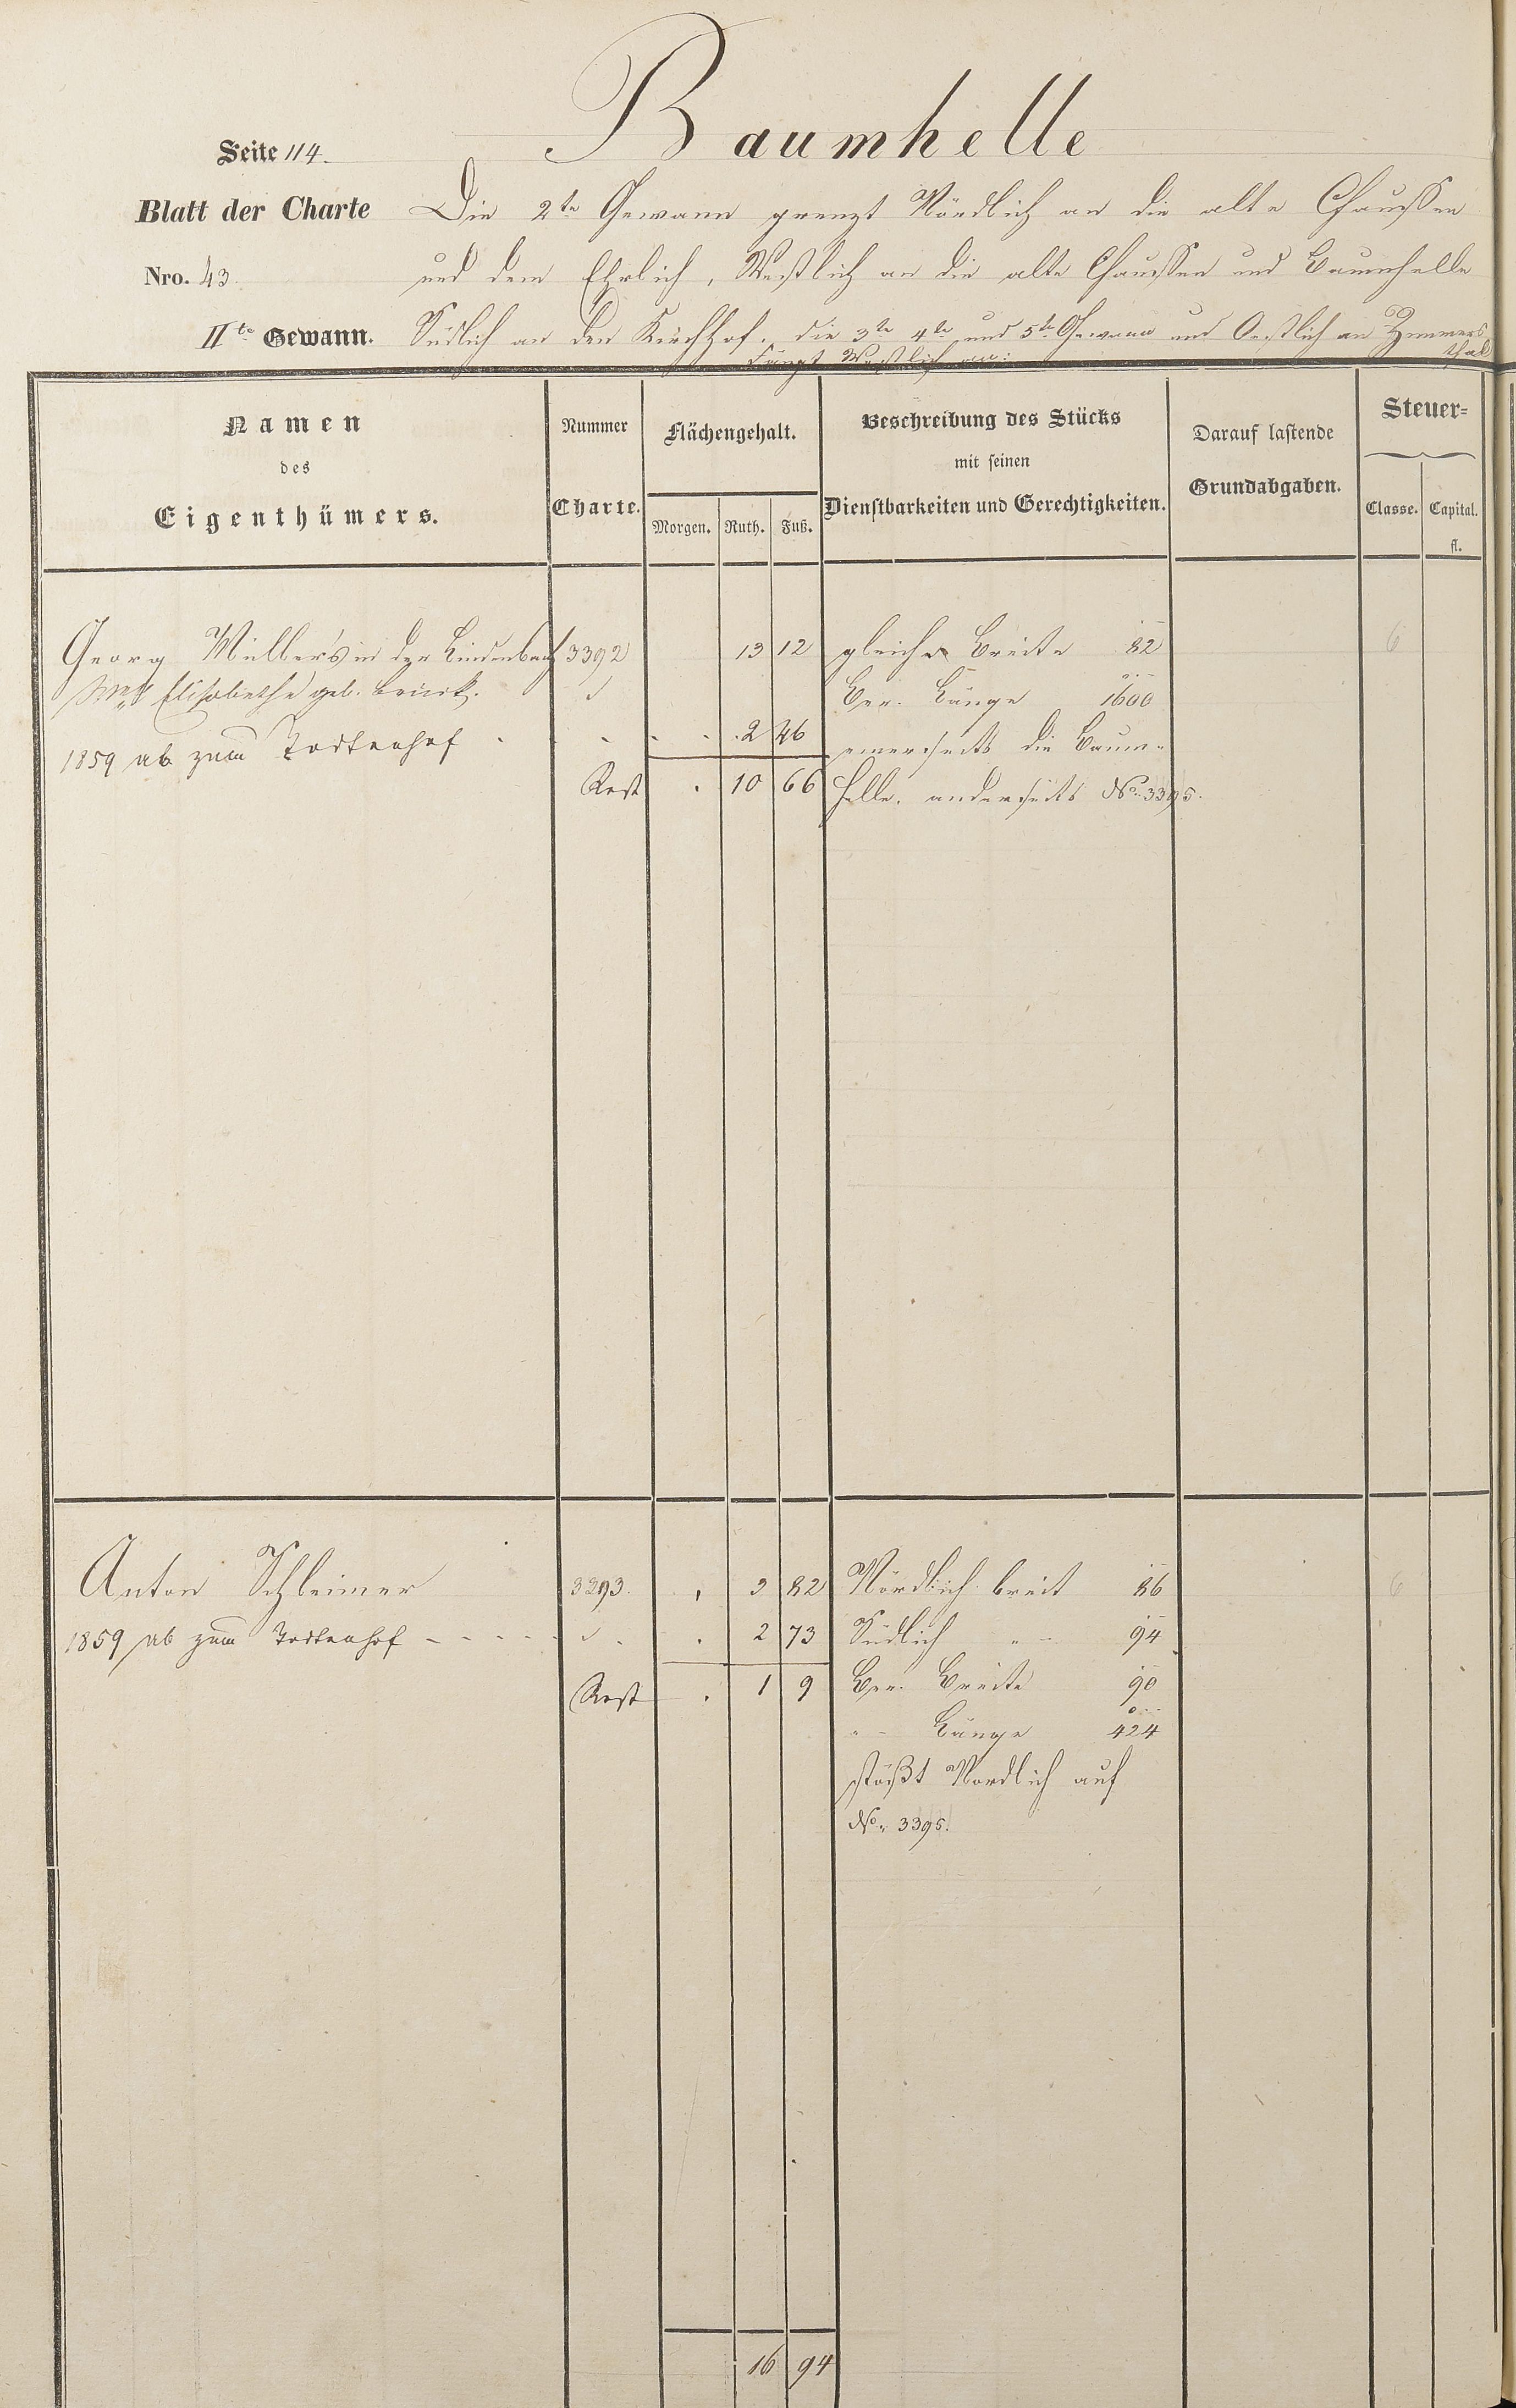 Baumhelle
Seite 114.
Blatt der Charte Die 2te Gewann grenzt Nördlich an die alte Chaussee
Nro. 43. und dem Ehrlich, Westlich an die alte Chaussee und Baumhelle
IIte Gewann. Südlich an den Kirchhof, die 3te 4te und 5te Gewann und Oestlich an Zimmers
thal
Fängt Westlich an:
Namen
des
Eigenthümers.
Nummer
Charte.
Flächengehalt.
Morgen. Ruth. Fuß.
Beschreibung des Stücks
mit seinen
Dienstbarkeiten und Gerechtigkeiten.
Darauf lastende
Grundabgaben.
Steuer-
Classe. Capital.
fl.
Georg Müller's in der Lindenbach 3392 13 12 gleiche Breite 82 6
Elisabetha geb. Brück. Ber. Länge 1600
1859 ab zum Todtenhof . . . . 2 46 einerseits die Baum-
Rest . 10 66 helle, anderseits No. 3395.
Anton Schleimer 3393. . 3 82 Nördlich breit 86 6
1859 ab zum Todtenhof - - - - - . 2 73 Südlich " 94
Rest . 1 9 Ber. Breite 90
" Länge 424
stößt Nordlich auf
No. 3395.
16 94